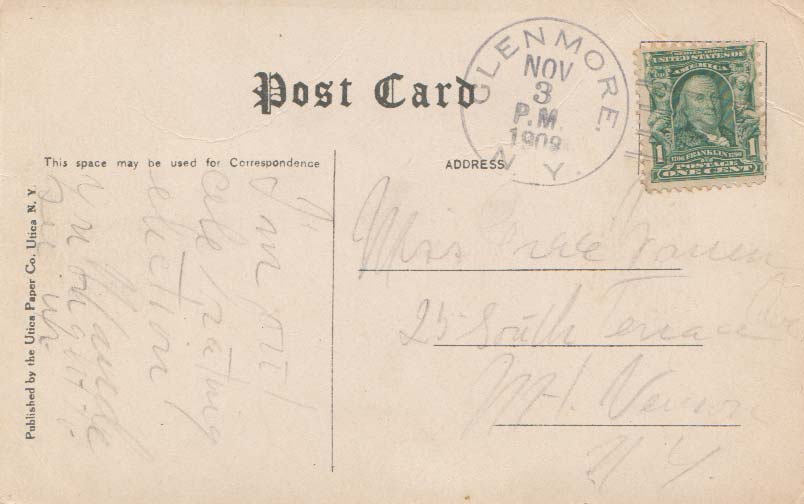 Post Card
GLENMORE.
NOV
3
P.M.
1908
N.Y.
UNITED STATES OF
AMERICA
1 1706 FRANKLIN 1790 1
POSTAGE
ONE CENT
This space may be used for Correspondence
ADDRESS
Published by the Utica Paper Co. Utica N. Y.
I'm just
celebrating
election
Maude
Miss
25 South Terrace
Mt Vernon
N Y